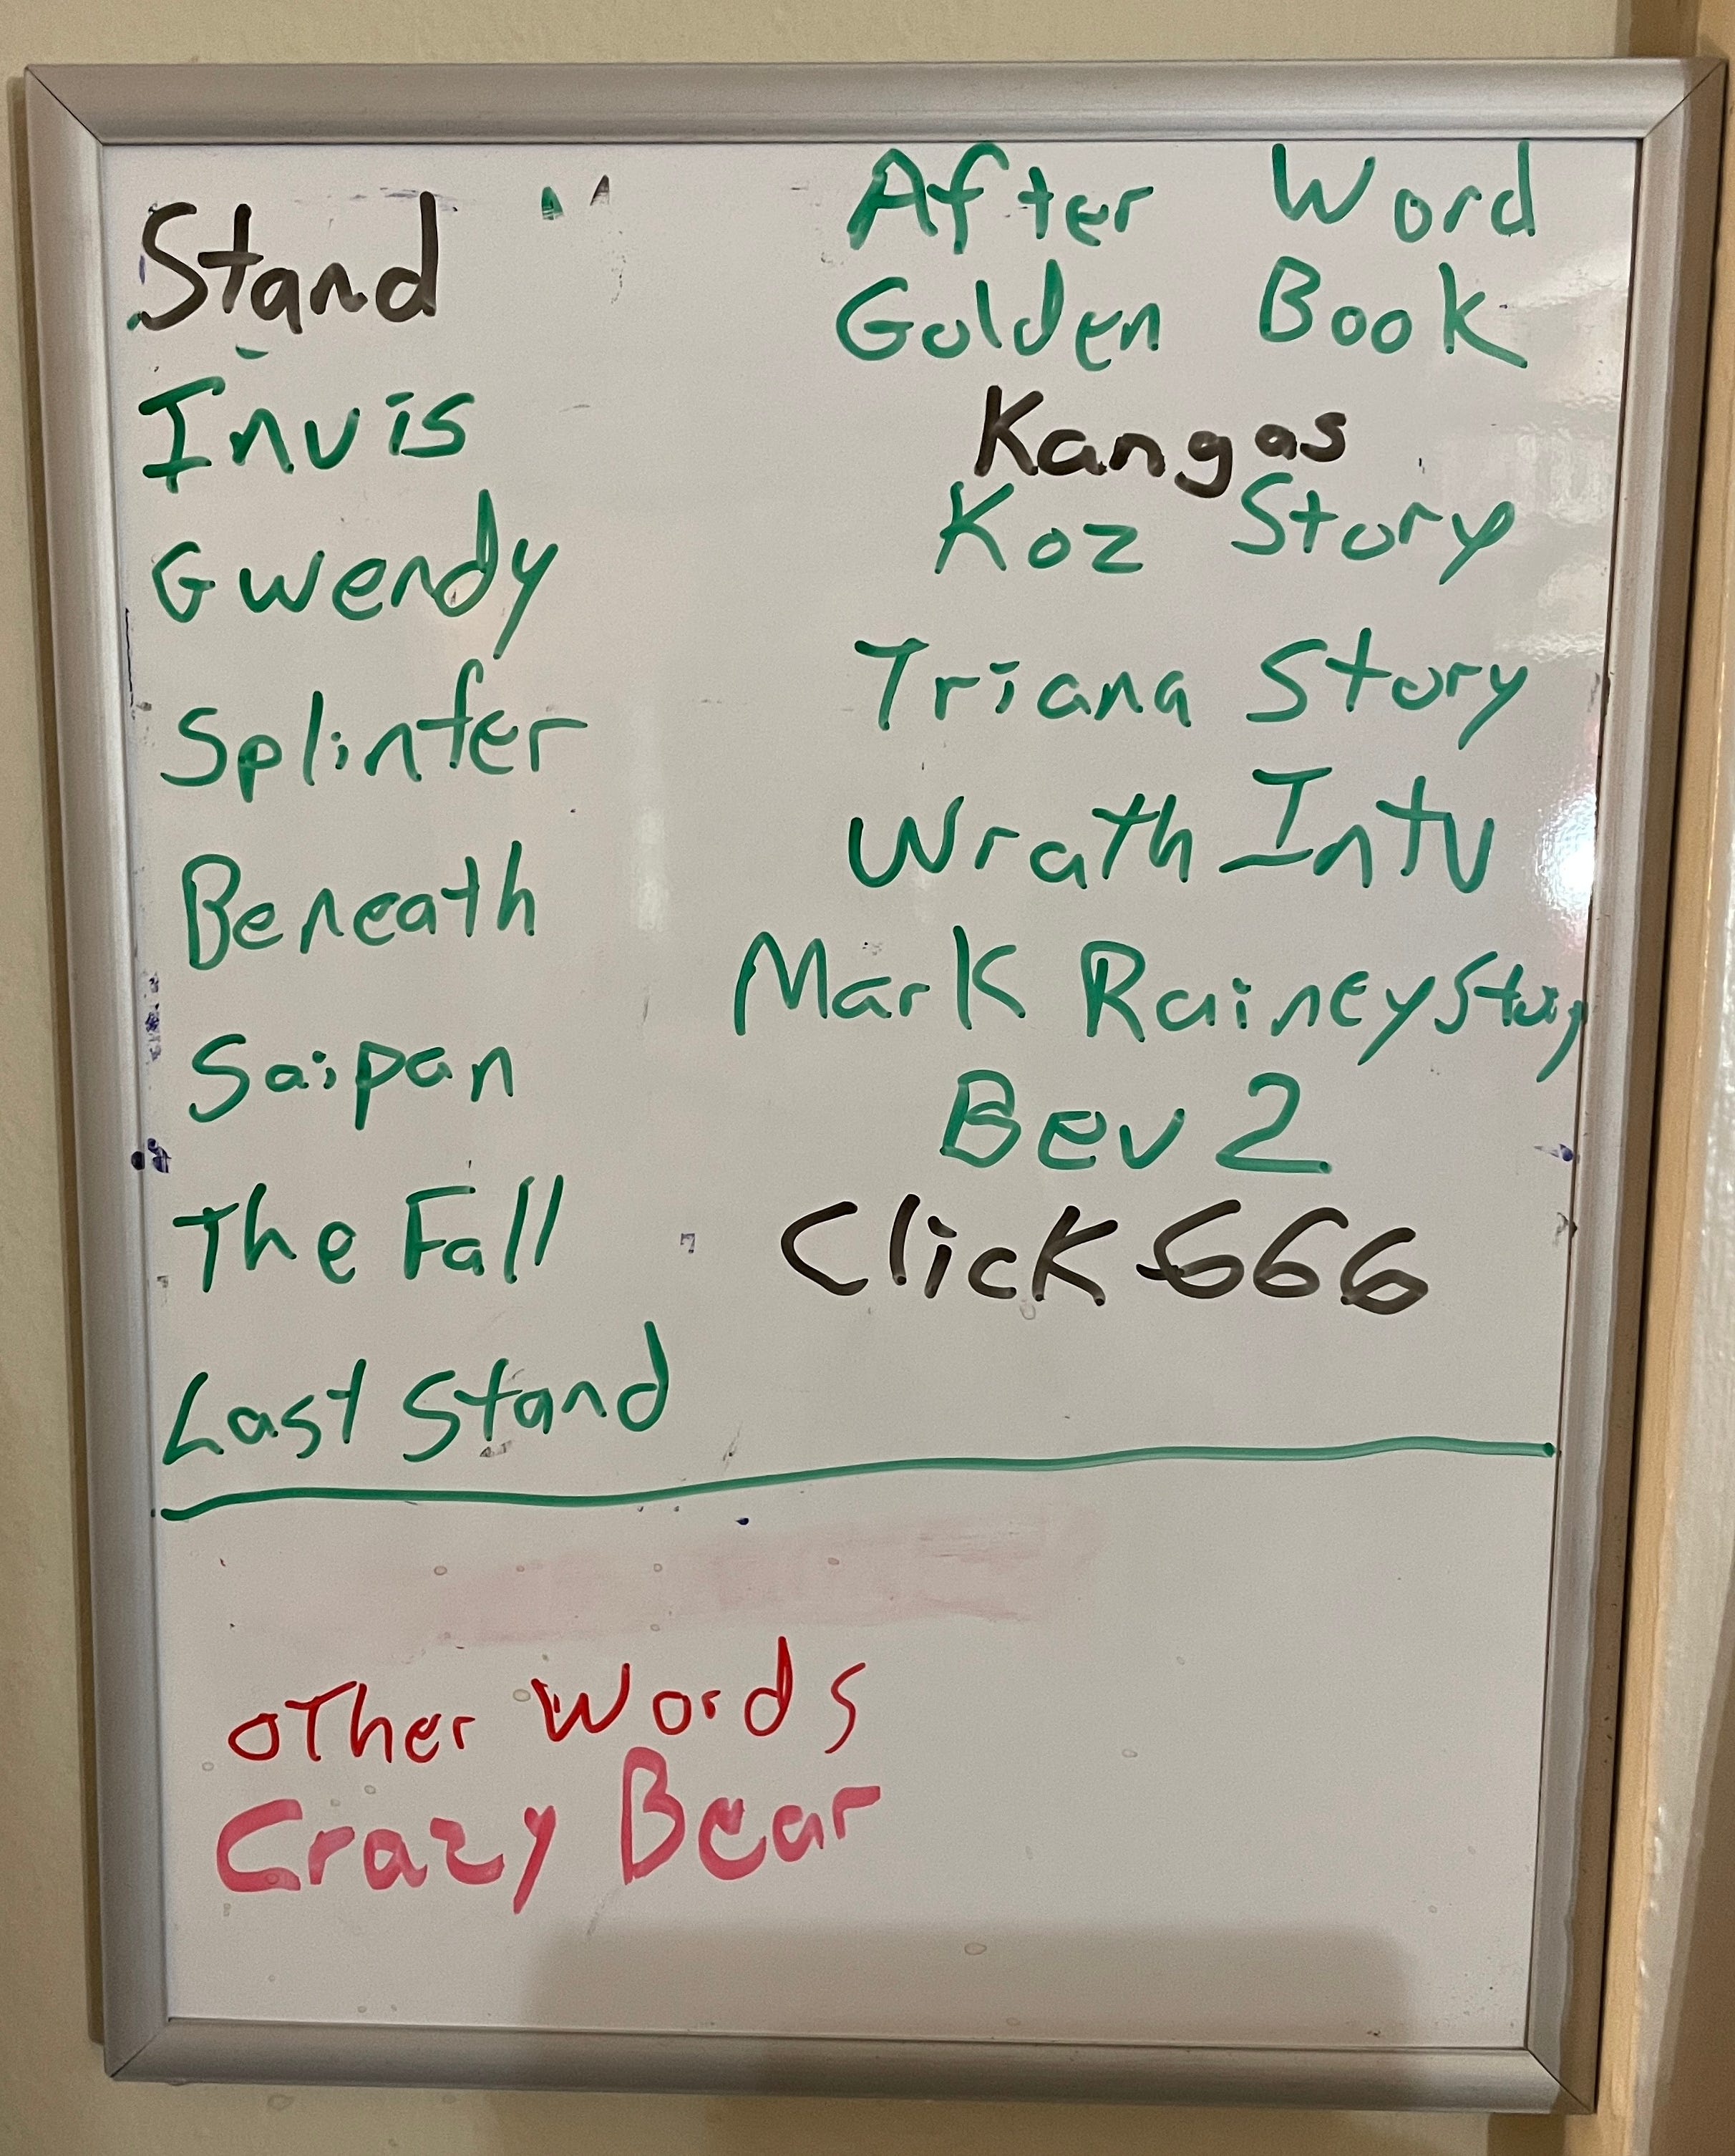 Stand
Invis
Gwendy
Splinter
Beneath
Saipan
The Fall
Last Stand
After Word
Golden Book
Kangas
Koz Story
Triana Story
Wrath Intv
Mark Rainey Story
Bev 2
Click 666
other Words
Crazy Bear